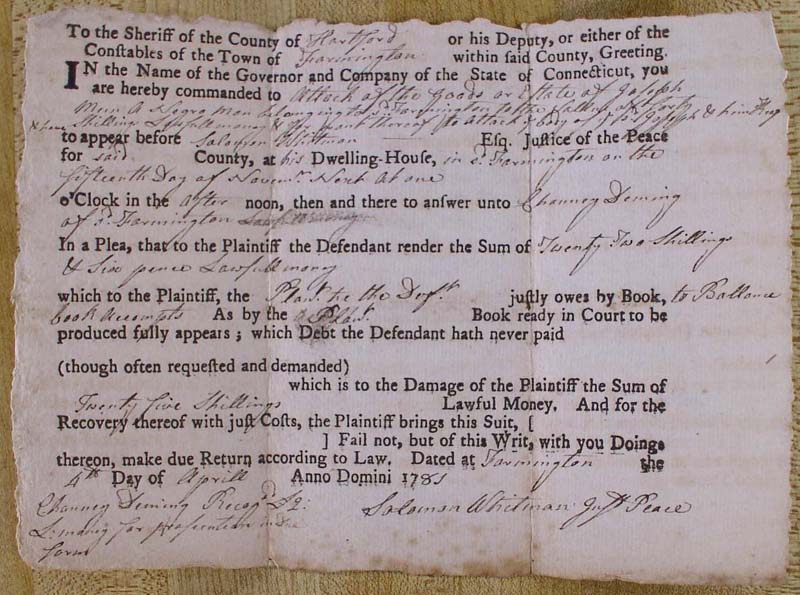 To the Sheriff of the County of Hartford or his Deputy, or either of the
Conſtables of the Town of Farmington within ſaid County, Greeting.
IN the Name of the Governor and Company of the State of Connecticut, you
are hereby commanded to Attach of the Goods or Estate of Joseph
Mun A Negro man belonging to sd. Farmington to the Vallue of Forty
Shilling Lawfull money & for want thereof to Attach ye Body of ye sd Joseph & him Keep
& have
to appear before Solomon Whitman Eſq. Juſtice of the Peace
for said County, at his Dwelling-Houſe, in sd. Farmington on the
fifteenth Day of Novemr. Next At one
o'Clock in the After noon, then and there to anſwer unto Chauncy Deming
of sd. Farmington
In a Plea, that to the Plaintiff the Defendant render the Sum of Twenty Two Shillings
& Six pence Lawfull mony
which to the Plaintiff, the Plat. he the Deft. juſtly owes by Book, to Ballance
book Accompts As by the Plat. Book ready in Court to be
produced fully appears ; which Debt the Defendant hath never paid
(though often requeſted and demanded)
which is to the Damage of the Plaintiff the Sum of
Twenty five Shillings Lawful Money. And for the
Recovery thereof with juſt Coſts, the Plaintiff brings this Suit, [
] Fail not, but of this Writ, with you Doings
thereon, make due Return according to Law. Dated at Farmington the
4th Day of Aprill Anno Domini 1781
Chauncy Deming Recogd
L: money for prosecution in due
form
Solomon Whitman Just Peace